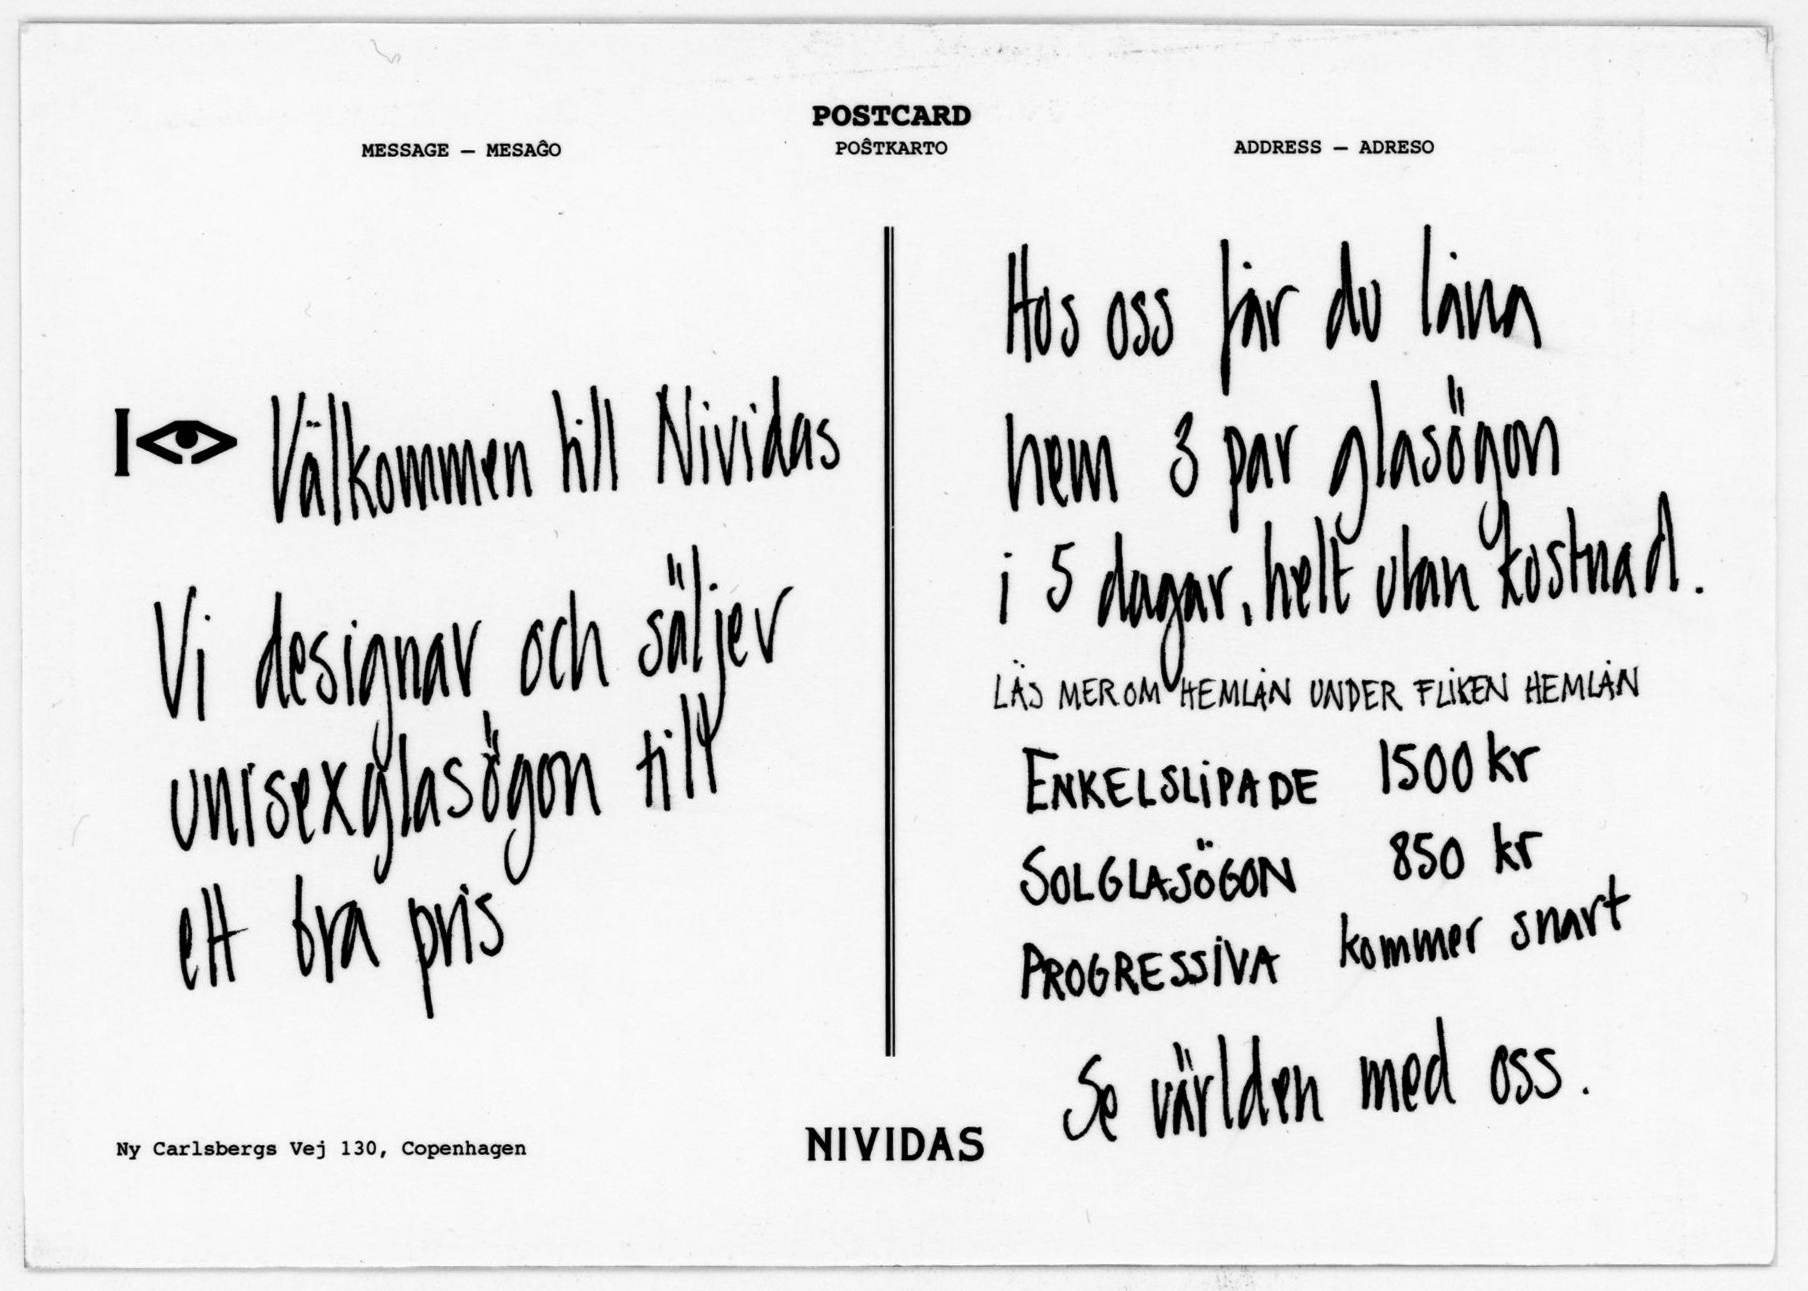 POSTCARD
POŜTKARTO
MESSAGE — MESAĜO
ADDRESS — ADRESO
I
Välkommen till Nividas
Vi designar och säljer
unisexglasögon till
ett bra pris
Hos oss får du låna
hem 3 par glasögon
i 5 dagar, helt utan kostnad.
LÄS MER OM HEMLÅN UNDER FLIKEN HEMLÅN
ENKELSLIPADE 1500 kr
SOLGLASÖGON 850 kr
PROGRESSIVA kommer snart
Se världen med oss.
Ny Carlsbergs Vej 130, Copenhagen
NIVIDAS